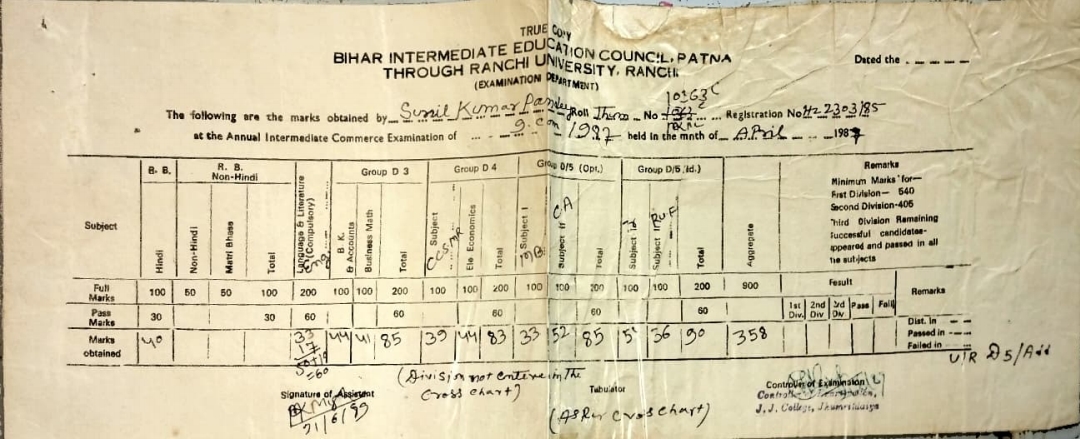 TRUE COPY
BIHAR INTERMEDIATE EDUCATION COUNCIL, PATNA
THROUGH RANCHI UNIVERSITY, RANCHI.
(EXAMINATION DEPARTMENT)
Dated the
The following are the marks obtained by Sunil Kumar Pandey Roll No Registration No 2303/85
at the Annual Intermediate Commerce Examination of 1987 held in the mnth of April 1987
Subject
B. B. R. B. Non-Hindi Group D 3 Group D 4 Group D/5 (Opt.) Group D/5 Remarks
Hindi Non-Hindi Matri Bhasa Total Language & Literature (Compulsory) Eng B. K. & Accounts Business Math Total Subject Ele Economics Total Subject I Subject II CA Total Subject Subject II Total Aggregate
Minimum Marks for—
First Division— 540
Second Division-405
Third Division Remaining
Successful candidates-
appeared and passed in all
he subjects
Full Marks 100 50 50 100 200 100 100 200 100 100 200 100 100 200 100 100 200 900 Result Remarks
Pass Marks 30 30 60 60 60 60 60 1st Div. 2nd Div 3rd Div Pass Fail
Marks obtained 40 33 17 44 41 85 39 44 83 33 52 85 36 90 358
Dist. In
Passed in
Failed in
U/R D5/Add
(Division not entere in the
Cross chart)
Signature of Assistent
21/6/99
Tabulator
(As Per Cross Chart)
Controller of Examination
J. J. College, Jhumritilaiya